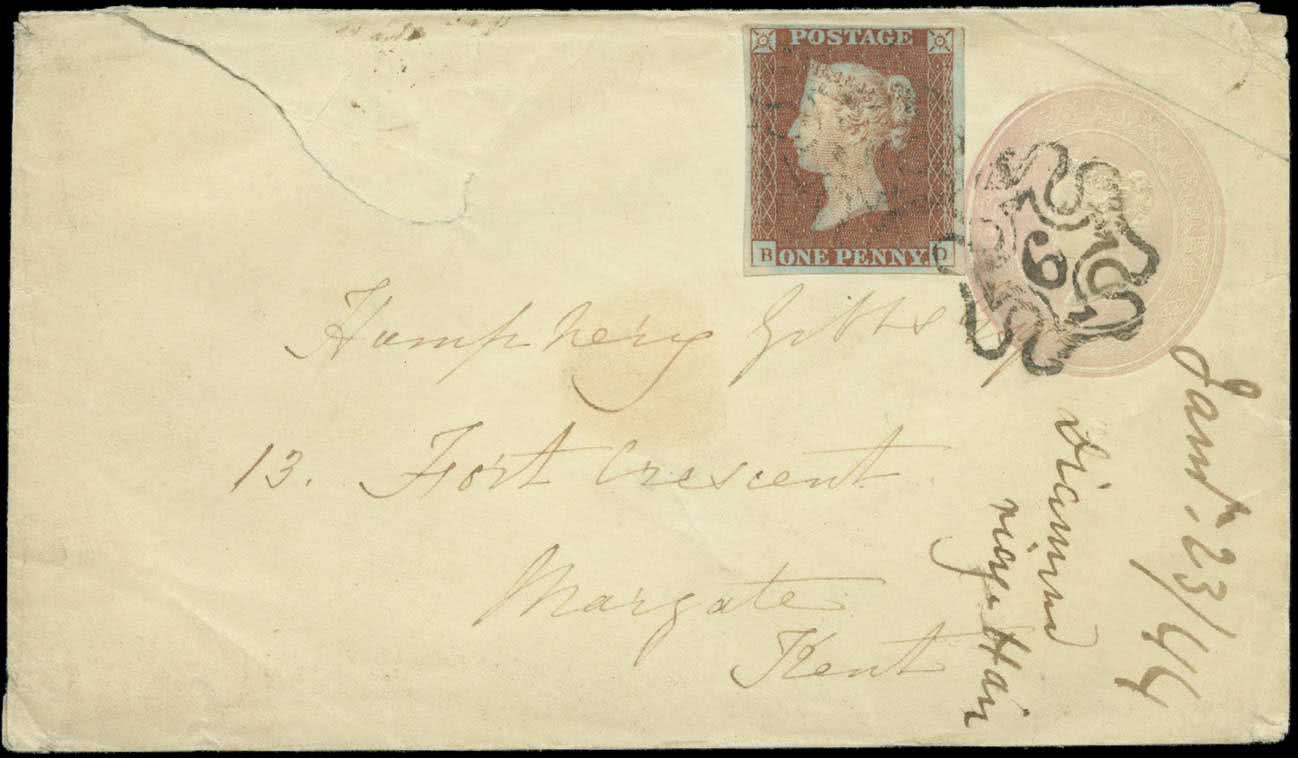 POSTAGE
B ONE PENNY. D
6
Humphery Gibbs Esq
13. Fort Crescent
Margate
Kent
Jany. 23/44
Hair